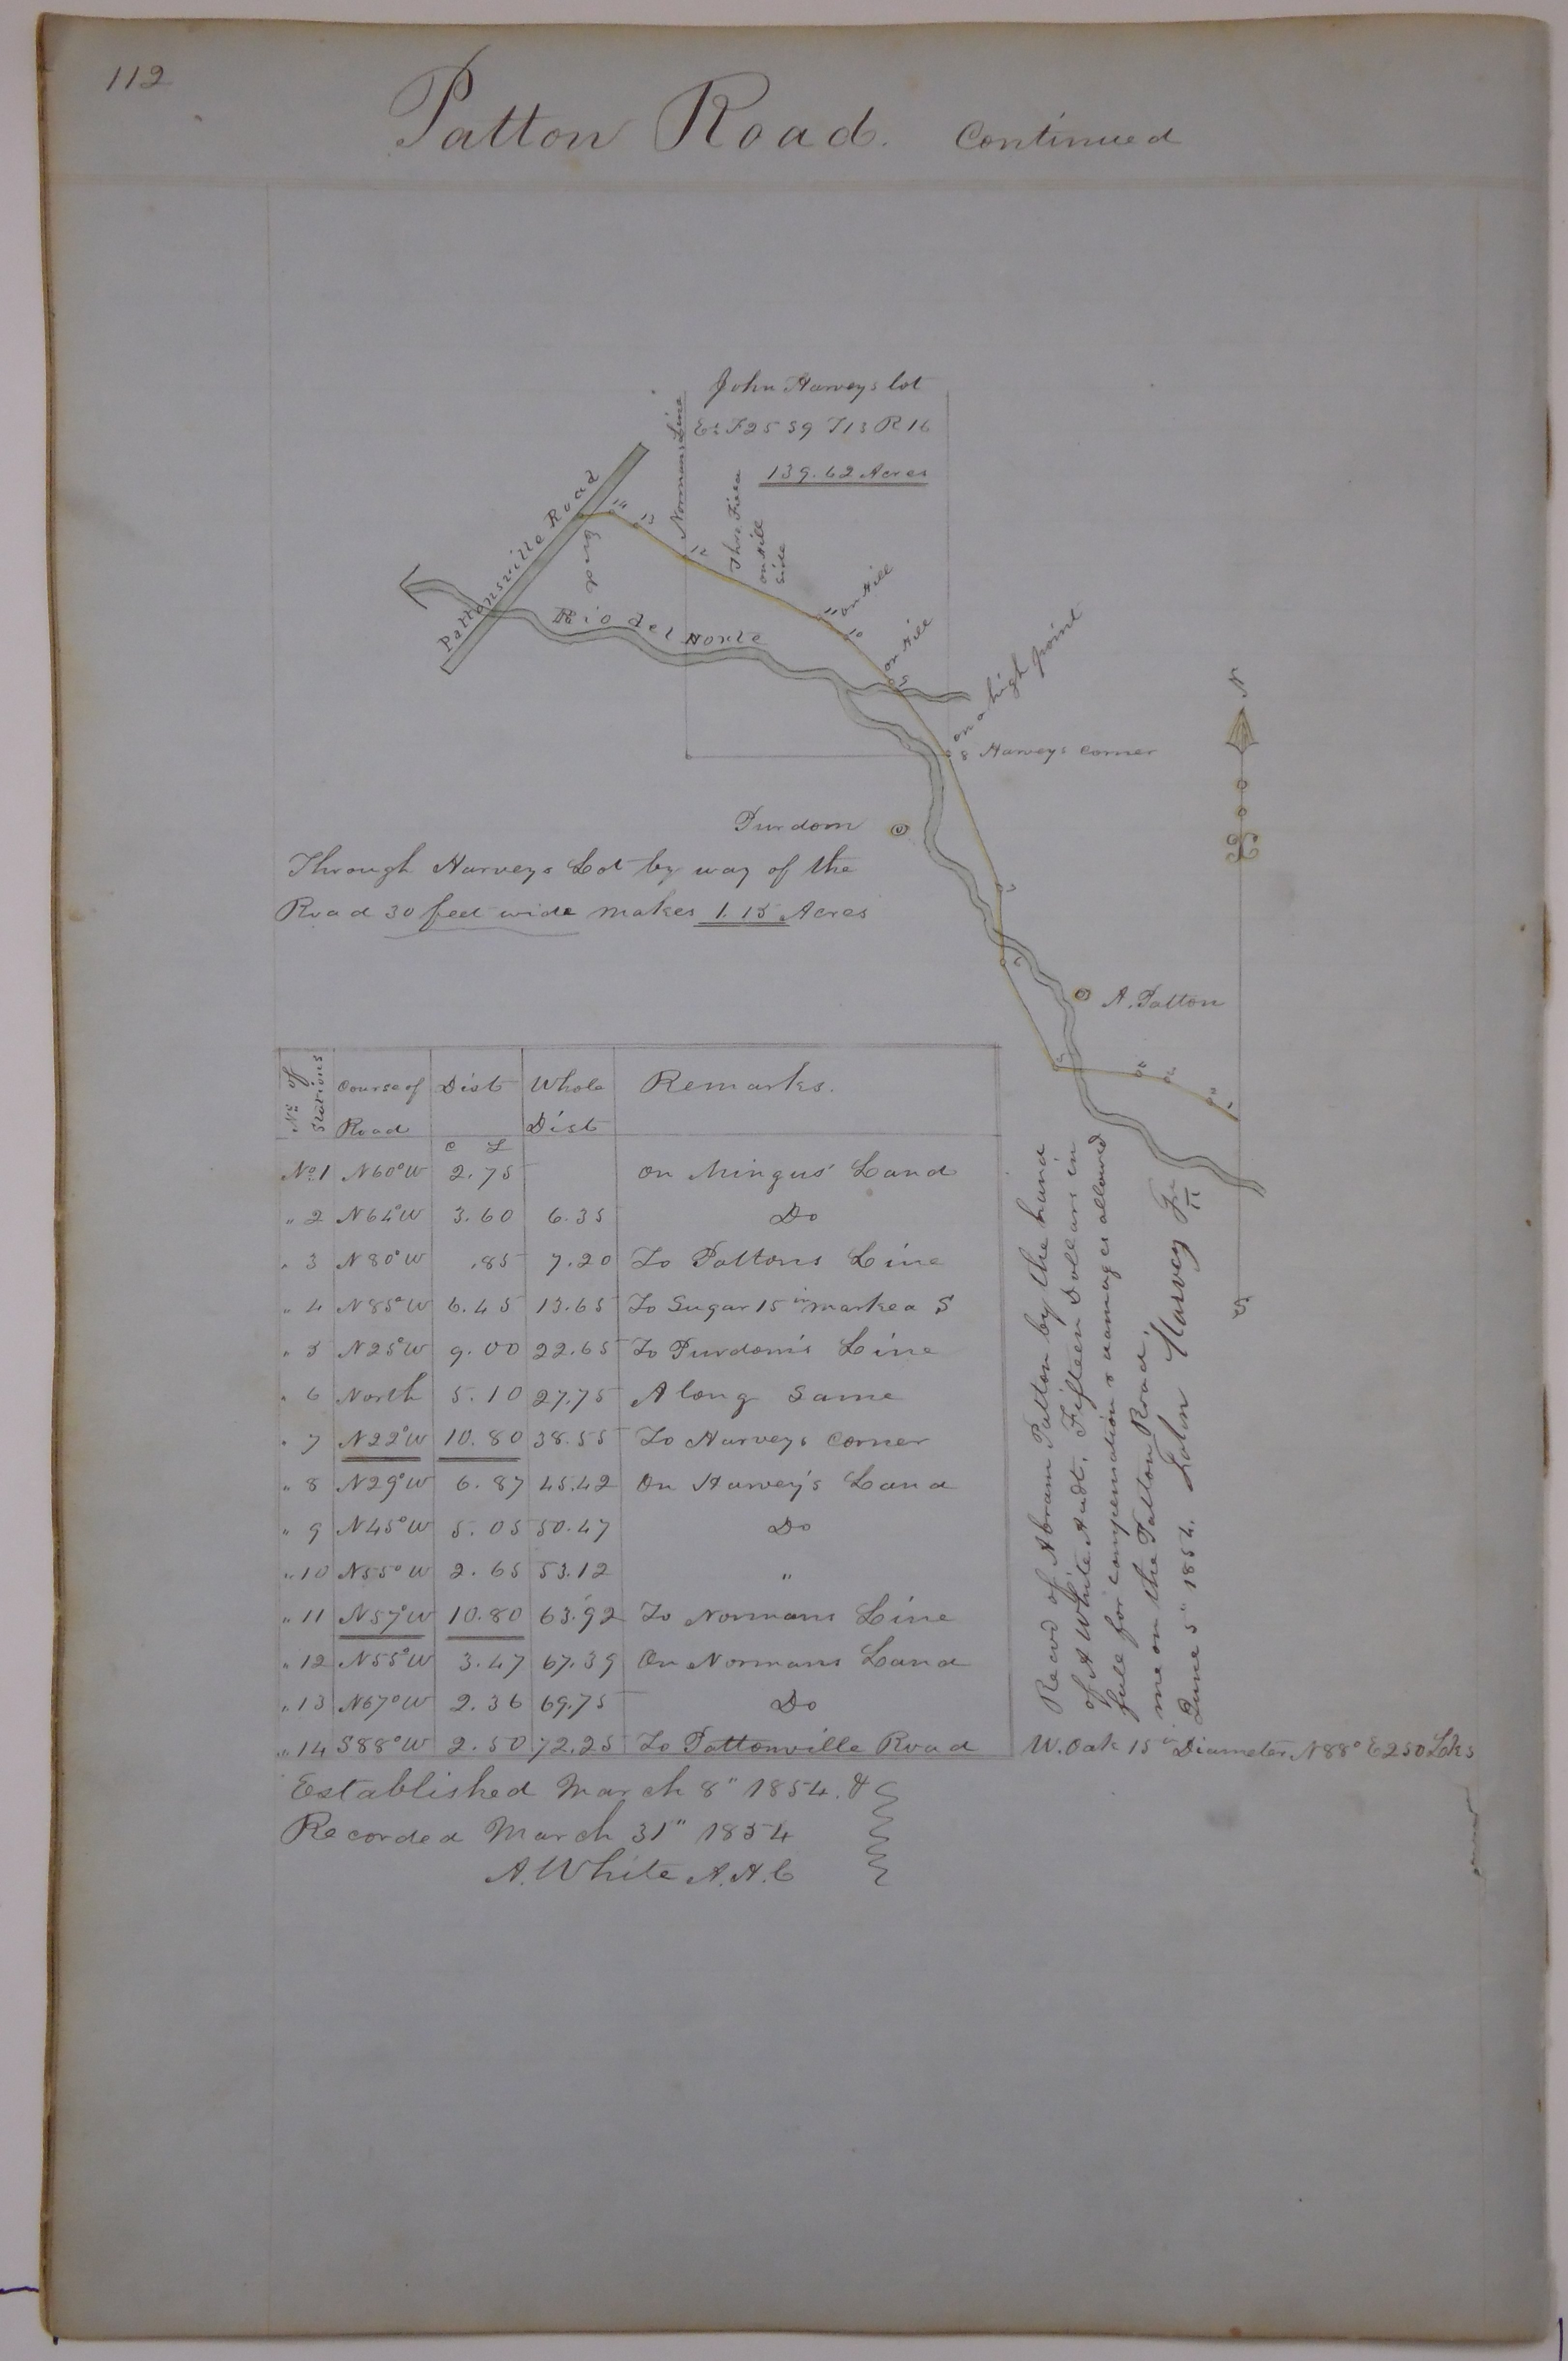 112
Patton Road. Continued
John Harveys lot
S9 T13 R16
139.62 Acres
Normans Line
Thro Field
on Hill
Side
Pattonsville Road
End
Rio del Norte
14
13
12
11 on Hill
10
on Hill
9
on a high point
8 Harveys corner
N
Purdom
Through Harveys Lot by way of the
Road 30 feet wide makes 1.15 Acres
7
6
A. Patton
5
4
3
2
1
S
No of Stations | Course of Road | Dist | Whole Dist | Remarks.
C L
No 1 N60°W 2.75 on Mingus' Land
" 2 N64°W 3.60 6.35 Do
" 3 N80°W .85 7.20 To Pattons Line
" 4 N85°W 6.45 13.65 To Sugar 15 in marked S
" 5 N25°W 9.00 22.65 To Purdom's Line
" 6 North 5.10 27.75 Along Same
" 7 N22°W 10.80 38.55 To Harveys Corner
" 8 N29°W 6.87 45.42 On Harvey's Land
" 9 N45°W 5.05 50.47 Do
" 10 N55°W 2.65 53.12 "
" 11 N57°W 10.80 63.92 To Normans Line
" 12 N55°W 3.47 67.39 On Normans Land
" 13 N67°W 2.36 69.75 Do
" 14 S88°W 2.50 72.25 To Pattonville Road W. Oak 15 in Diameter N88°E 250 Lks
Recvd of Abram Patton by the hand
of A White Audt. Fifteen Dollars in
full for compensation & damages allowed
me on the Patton Road.
June 5" 1854. John Harvey
Established March 8" 1854. &
Recorded March 31" 1854
A. White A.A.C